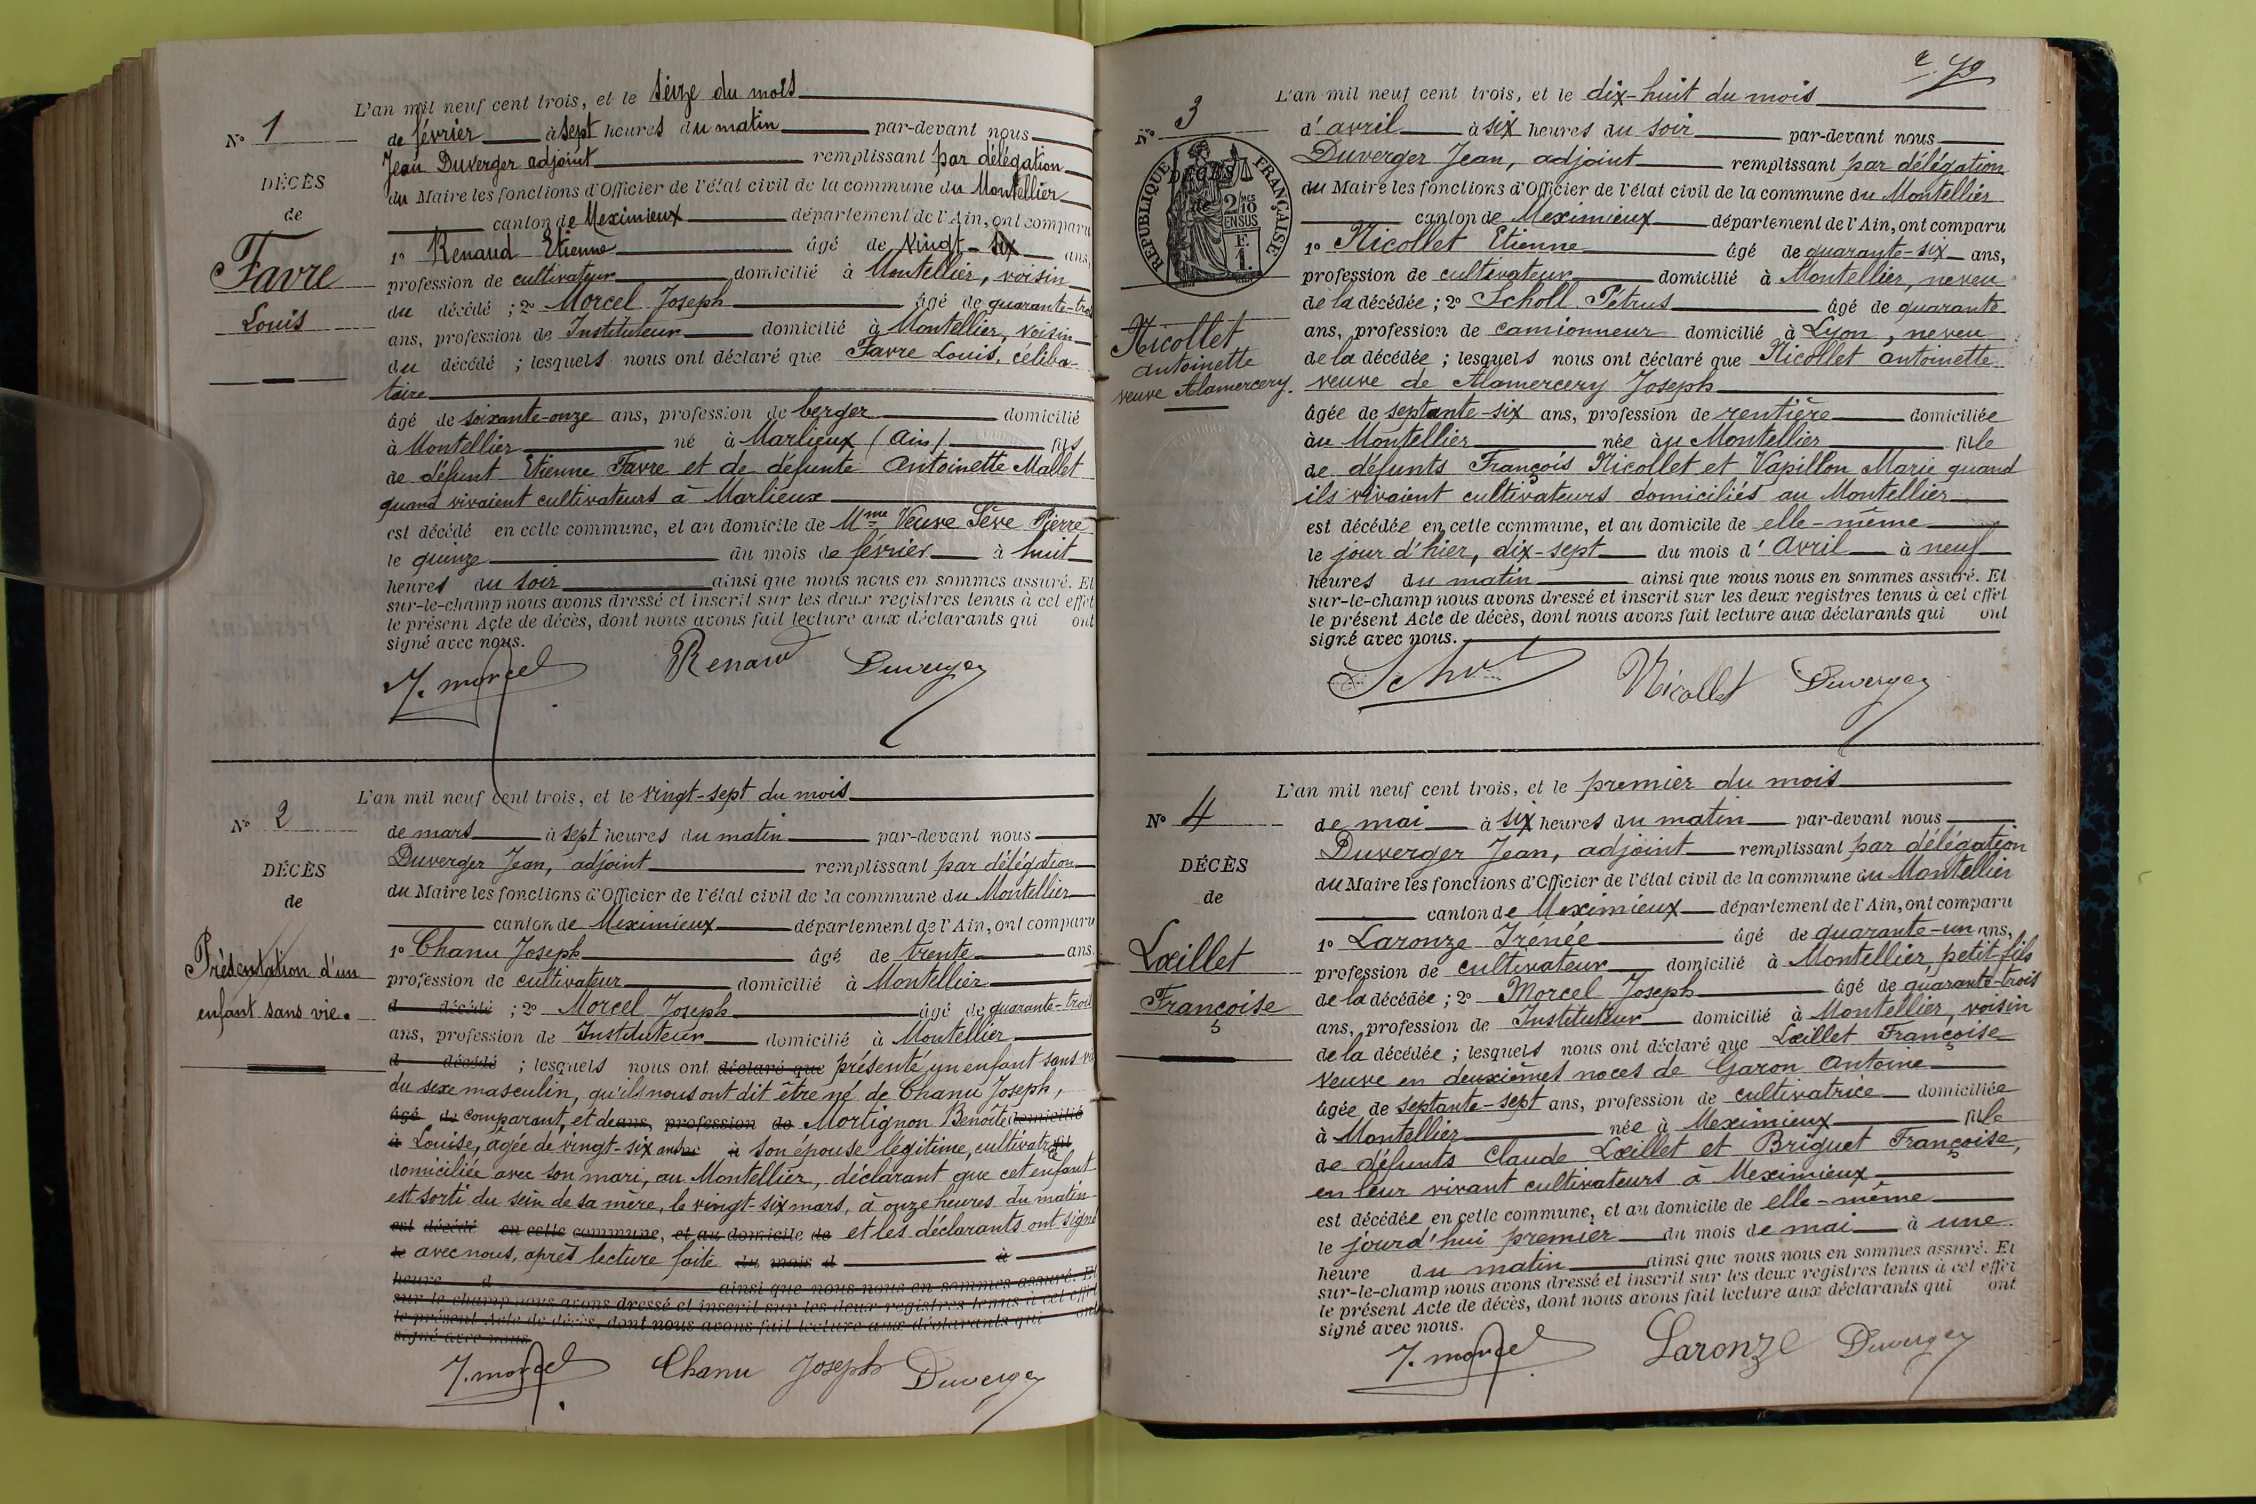 N° 1
DÉCÈS
de
Favre
Louis
L'an mil neuf cent trois, et le seize du mois
de février à sept heures du matin par-devant nous
Jean Duverger adjoint remplissant par délégation
du Maire les fonctions d'Officier de l'état civil de la commune du Montellier
canton de Meximieux département de l'Ain, ont comparu
1° Renaud Etienne âgé de vingt-six ans,
profession de cultivateur domicilié à Montellier, voisin
du décédé ; 2° Morcel Joseph âgé de quarante-trois
ans, profession de Instituteur domicilié à Montellier, voisin
du décédé ; lesquels nous ont déclaré que Favre Louis, céliba-
taire
âgé de soixante-onze ans, profession de berger domicilié
à Montellier né à Marlieux (Ain) fils
de défunt Etienne Favre et de défunte Antoinette Mallet
quand vivaient cultivateurs à Marlieux
est décédé en cette commune, et au domicile de Mme Veuve Sève Pierre
le quinze du mois de février à huit
heures du soir ainsi que nous nous en sommes assuré. Et
sur-le-champ nous avons dressé et inscrit sur les deux registres tenus à cet effet
le présent Acte de décès, dont nous avons fait lecture aux déclarants qui ont
signé avec nous.
J. morcel Renaud Duverger
N° 2
DÉCÈS
de
Présentation d'un
enfant sans vie.
L'an mil neuf cent trois, et le vingt-sept du mois
de mars à sept heures du matin par-devant nous
Duverger Jean, adjoint remplissant par délégation
du Maire les fonctions d'Officier de l'état civil de la commune du Montellier
canton de Meximieux département de l'Ain, ont comparu
1° Chanu Joseph âgé de trente ans,
profession de cultivateur domicilié à Montellier
d décédé ; 2° Morcel Joseph âgé de quarante-trois
ans, profession de Instituteur domicilié à Montellier
d décédé ; lesquels nous ont déclaré que présenté un enfant sans vie
du sexe masculin, qu'ils nous ont dit être né de Chanu Joseph,
âgé de comparant, et de ans, profession de Mortignon Benoîte domicilié
à Louise, âgée de vingt-six ans né à son épouse légitime, cultivatrice
domiciliée avec son mari, au Montellier, déclarant que cet enfant
est sorti du sein de sa mère, le vingt-six mars, à onze heures du matin
est décédé en cette commune, et au domicile de et les déclarants ont signé
le avec nous, après lecture faite du mois d à
heure d ainsi que nous nous en sommes assuré. Et
sur-le-champ nous avons dressé et inscrit sur les deux registres tenus à cet effet
le présent Acte de décès, dont nous avons fait lecture aux déclarants qui ont
signé avec nous.
J. morcel Chanu Joseph Duverger
N° 3
DÉCÈS
RÉPUBLIQUE FRANÇAISE
2 10 EN SUS
Nicollet
Antoinette
veuve Alamercery.
L'an mil neuf cent trois, et le dix-huit du mois
d'avril à six heures du soir par-devant nous
Duverger Jean, adjoint remplissant par délégation
du Maire les fonctions d'Officier de l'état civil de la commune du Montellier
canton de Meximieux département de l'Ain, ont comparu
1° Nicollet Etienne âgé de quarante-six ans,
profession de cultivateur domicilié à Montellier, neveu
de la décédée ; 2° Scholl Pétrus âgé de quarante
ans, profession de camionneur domicilié à Lyon, neveu
de la décédée ; lesquels nous ont déclaré que Nicollet Antoinette
veuve de Alamercery Joseph
âgée de septante-six ans, profession de rentière domiciliée
àu Montellier née àu Montellier fille
de défunts François Nicollet et Vapillon Marie quand
ils vivaient cultivateurs domiciliés au Montellier
est décédée en cette commune, et au domicile de elle-même
le jour d'hier, dix-sept du mois d'Avril à neuf
heures du matin ainsi que nous nous en sommes assuré. Et
sur-le-champ nous avons dressé et inscrit sur les deux registres tenus à cet effet
le présent Acte de décès, dont nous avons fait lecture aux déclarants qui ont
signé avec nous.
Scholl Nicollet Duverger
N° 4
DÉCÈS
de
Lœillet
Françoise
L'an mil neuf cent trois, et le premier du mois
de mai à six heures du matin par-devant nous
Duverger Jean, adjoint remplissant par délégation
du Maire les fonctions d'Officier de l'état civil de la commune du Montellier
canton de Meximieux département de l'Ain, ont comparu
1° Laronze Irénée âgé de quarante-un ans,
profession de cultivateur domicilié à Montellier, petit-fils
de la décédée ; 2° Morcel Joseph âgé de quarante-trois
ans, profession de Instituteur domicilié à Montellier, voisin
de la décédée ; lesquels nous ont déclaré que Lœillet Françoise
veuve en deuxièmes noces de Garon Antoine
âgée de septante-sept ans, profession de cultivatrice domiciliée
à Montellier née à Meximieux fille
de défunts Claude Lœillet et Briguet Françoise,
en leur vivant cultivateurs à Meximieux
est décédée en cette commune, et au domicile de elle-même
le jourd'hui premier du mois de mai à une
heure du matin ainsi que nous nous en sommes assuré. Et
sur-le-champ nous avons dressé et inscrit sur les deux registres tenus à cet effet
le présent Acte de décès, dont nous avons fait lecture aux déclarants qui ont
signé avec nous.
J. morcel Laronze Duverger